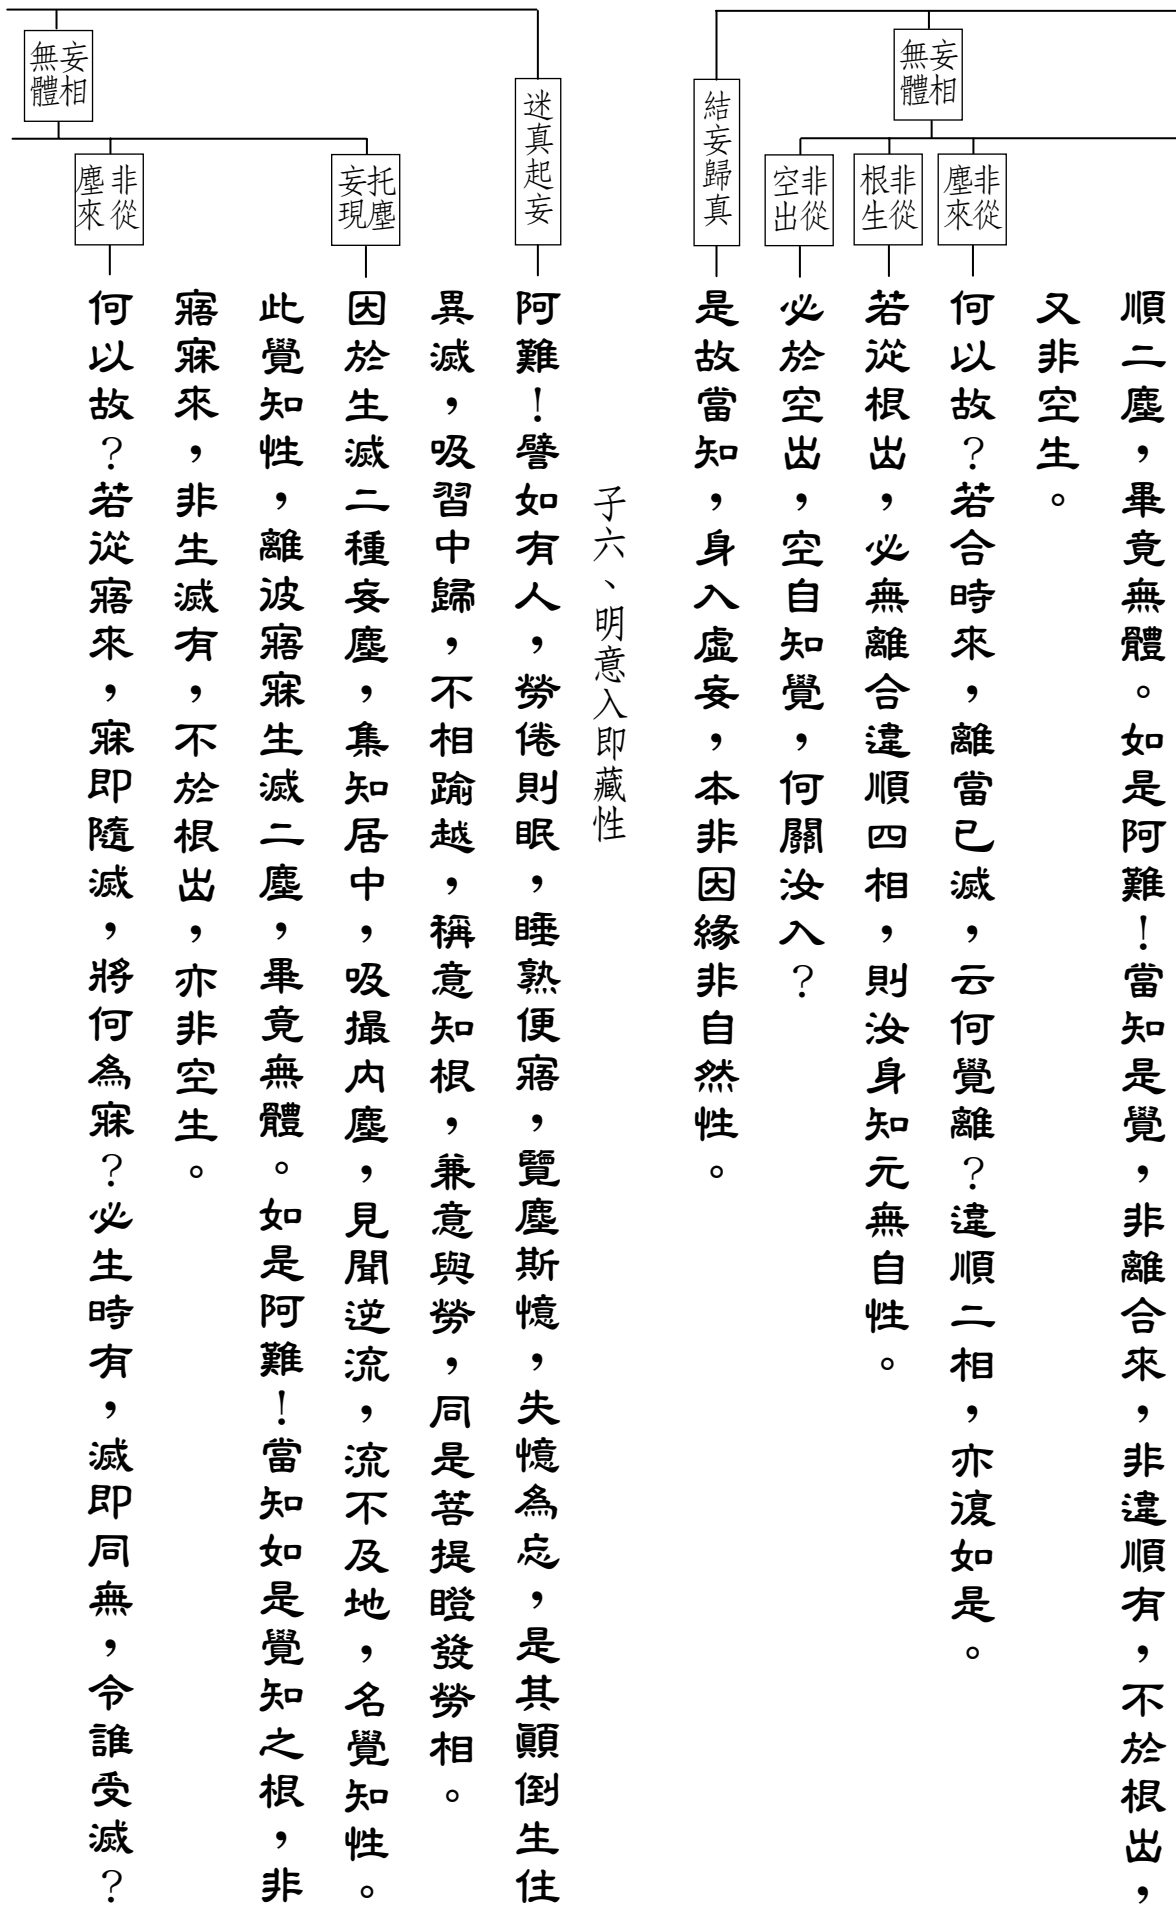 妄相
無體
順二塵，畢竟無體。如是阿難！當知是覺，非離合來，非違順有，不於根出，
又非空生。
非從
塵來
何以故？若合時來，離當已滅，云何覺離？違順二相，亦復如是。
非從
根生
若從根出，必無離合違順四相，則汝身知元無自性。
非從
空出
必於空出，空自知覺，何關汝入？
結妄歸真
是故當知，身入虛妄，本非因緣非自然性。
子六、明意入即藏性
迷真起妄
阿難！譬如有人，勞倦則眠，睡熟便寤，覽塵斯憶，失憶為忘，是其顛倒生住
異滅，吸習中歸，不相踰越，稱意知根，兼意與勞，同是菩提瞪發勞相。
妄相
無體
托塵
妄現
因於生滅二種妄塵，集知居中，吸撮內塵，見聞逆流，流不及地，名覺知性。
此覺知性，離彼寤寐生滅二塵，畢竟無體。如是阿難！當知如是覺知之根，非
寤寐來，非生滅有，不於根出，亦非空生。
非從
塵來
何以故？若從寤來，寐即隨滅，將何為寐？必生時有，滅即同無，令誰受滅？